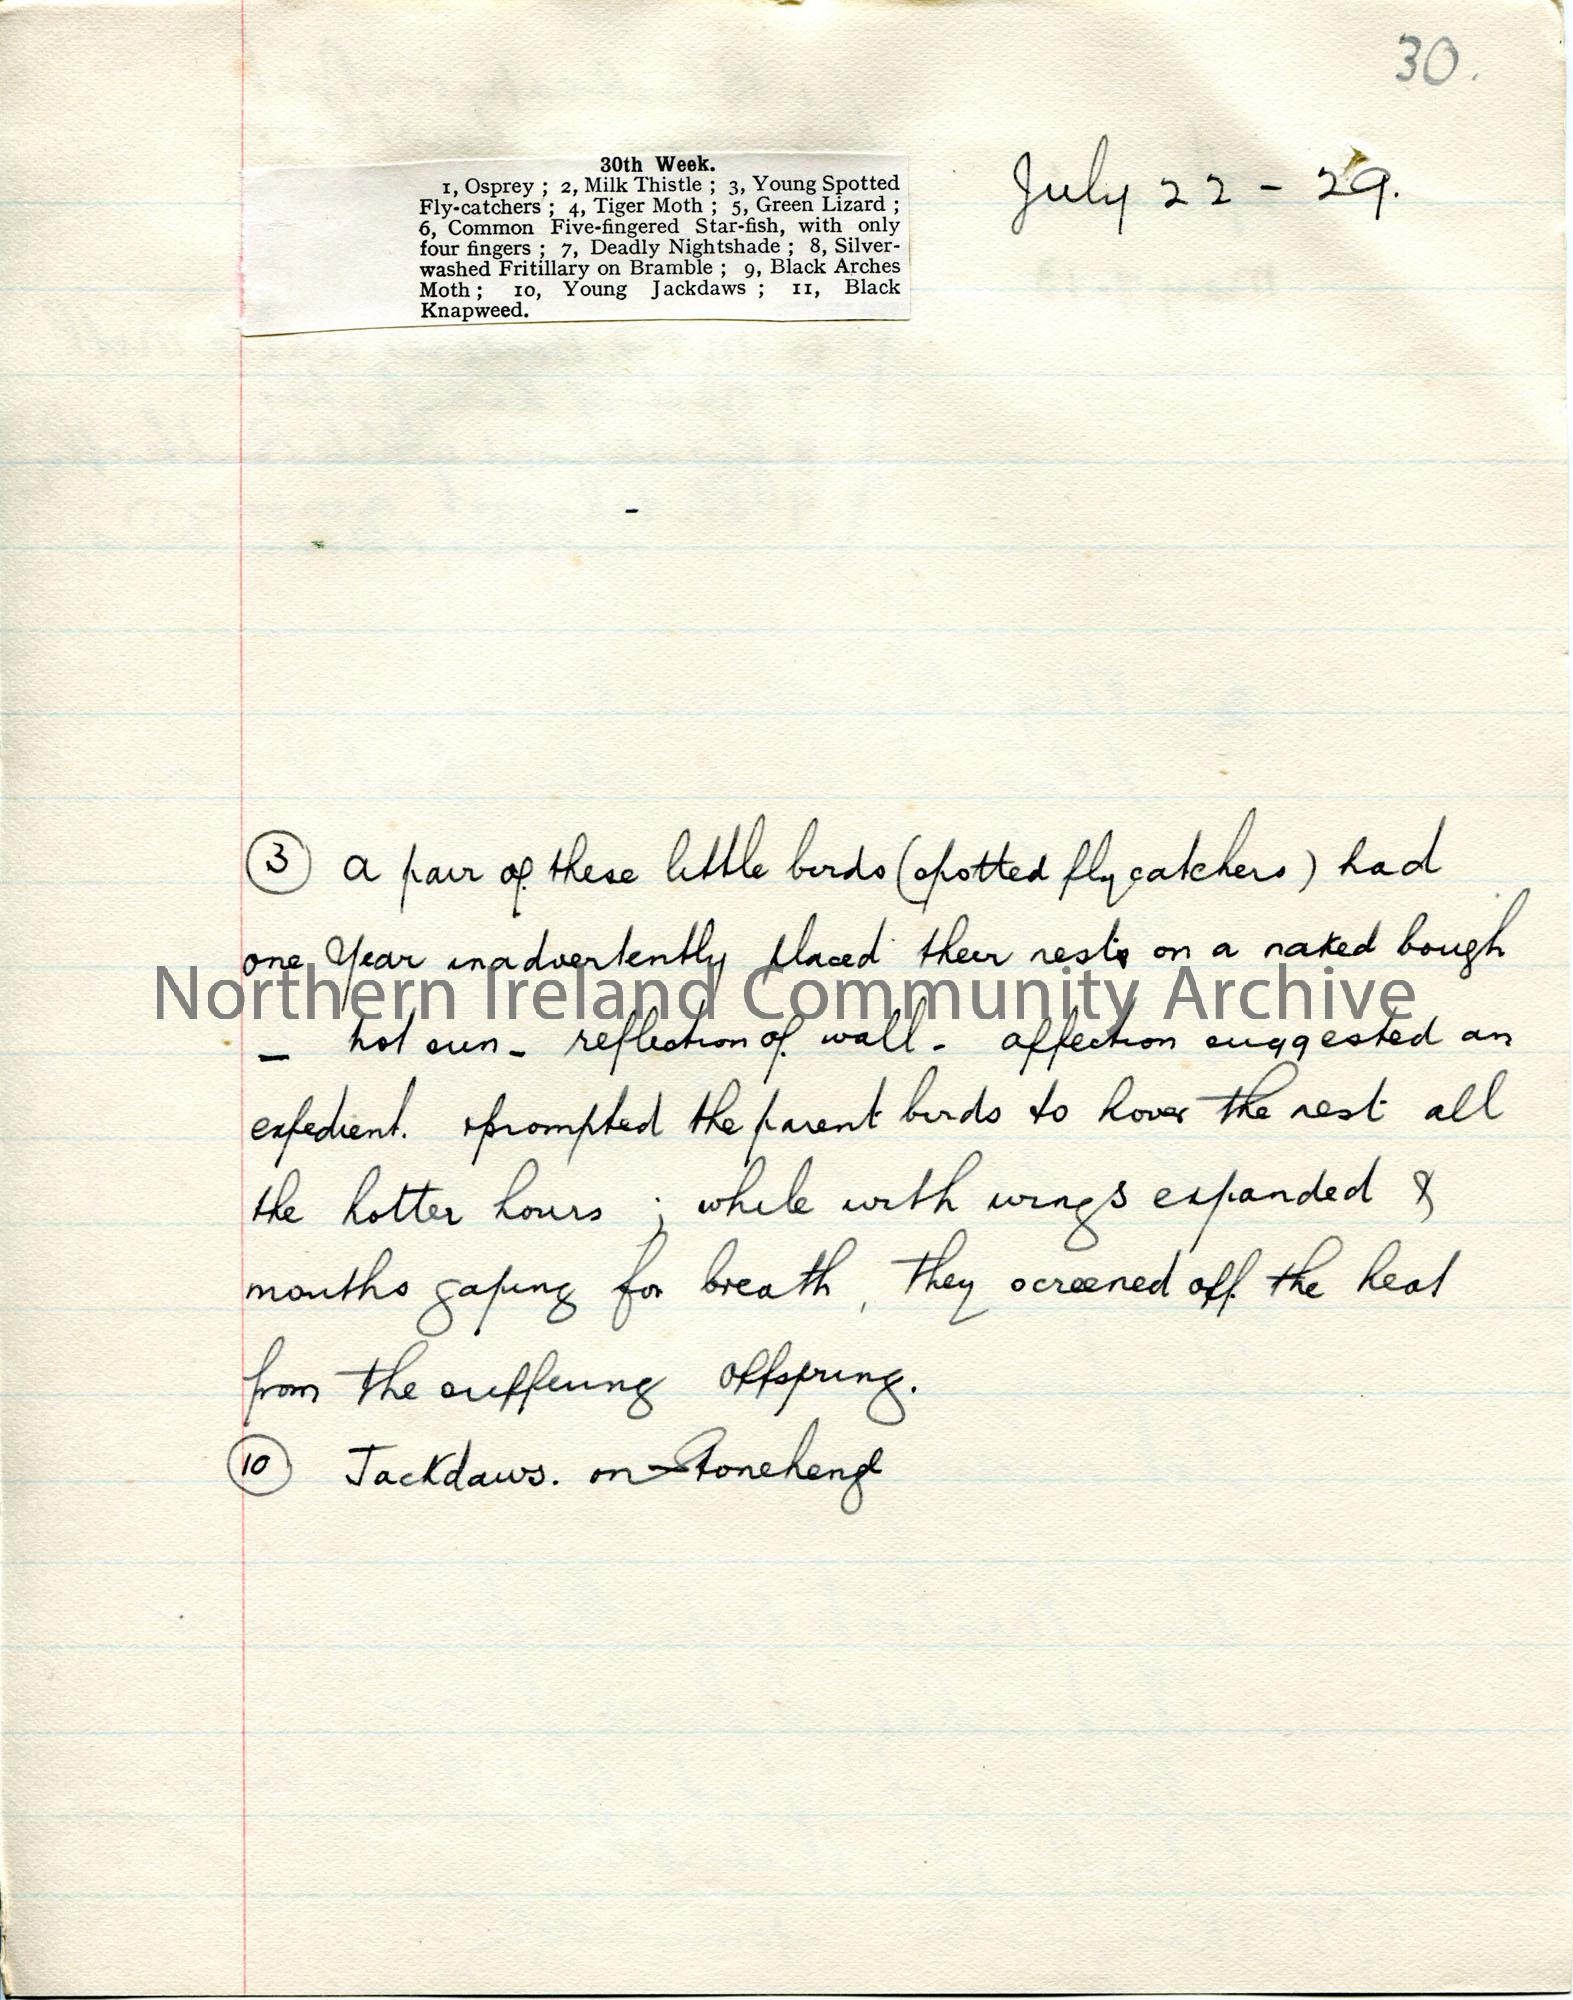 30.
30th Week.
1, Osprey ; 2, Milk Thistle ; 3, Young Spotted
Fly-catchers ; 4, Tiger Moth ; 5, Green Lizard ;
6, Common Five-fingered Star-fish, with only
four fingers ; 7, Deadly Nightshade ; 8, Silver-
washed Fritillary on Bramble ; 9, Black Arches
Moth ; 10, Young Jackdaws ; 11, Black
Knapweed.
July 22 - 29.
③ a pair of these little birds (spotted fly catchers) had
one Year inadvertently placed their nests on a naked bough
Northern Ireland Community Archive
- hot sun - reflection of wall - affection suggested an
expedient. & prompted the parent birds to hover the nest all
the hotter hours ; while with wings expanded &
mouths gaping for breath, they screened off the heat
from the suffering offspring.
⑩ Jackdaws. on Stonehenge